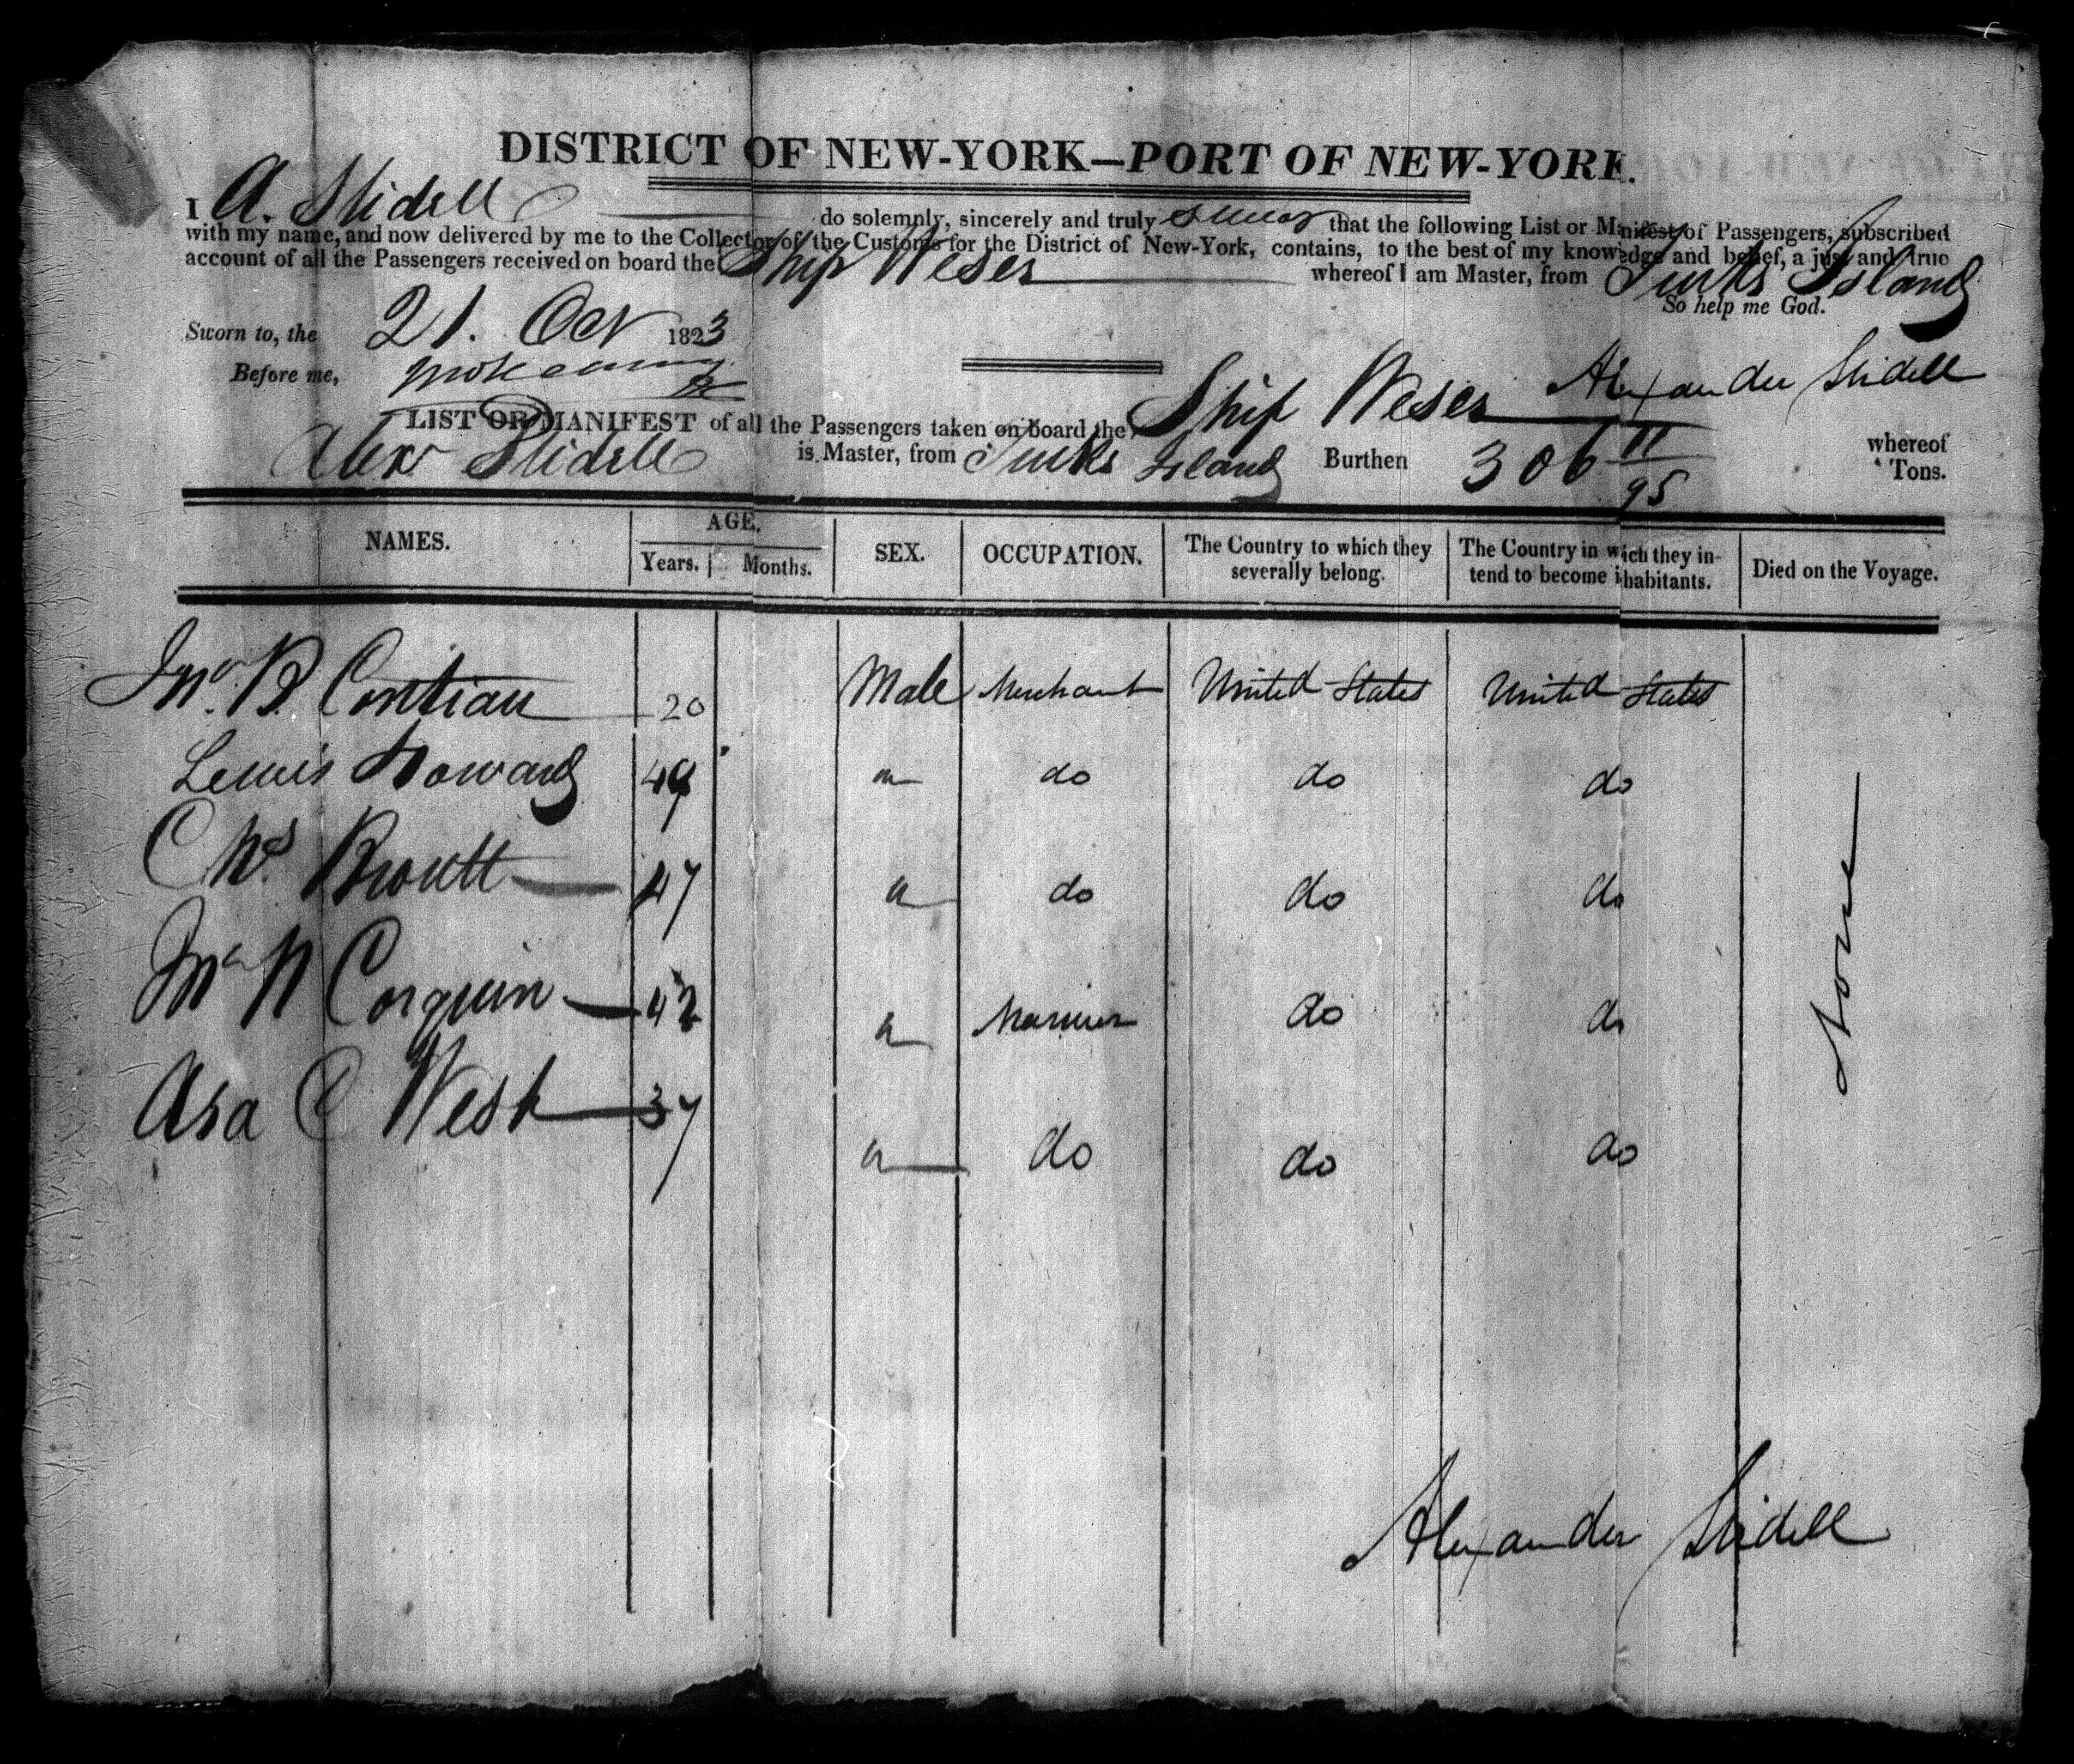 DISTRICT OF NEW-YORK—PORT OF NEW-YORK.
I A. Slidell do solemnly, sincerely and truly swear that the following List or Manifest of Passengers, subscribed
with my name, and now delivered by me to the Collector of the Customs for the District of New-York, contains, to the best of my knowledge and belief, a just and true
account of all the Passengers received on board the Ship Weser whereof I am Master, from Turks Island
So help me God.
Sworn to, the 21. Oct 1823
Before me,
Alexander Slidell
LIST OR MANIFEST of all the Passengers taken on board the Ship Weser whereof
Alexr Slidell is Master, from Turks Island Burthen 306 11/95 Tons.
NAMES. AGE. Years. Months. SEX. OCCUPATION. The Country to which they severally belong. The Country in wich they intend to become inhabitants. Died on the Voyage.
Jno. B. 20 Male Merchant United States United States
Lewis Howard 49 do do do
Chs. 47 do do do
Corquin 42 Mariner do do
Asa C West 37 do do do
None
Alexander Slidell